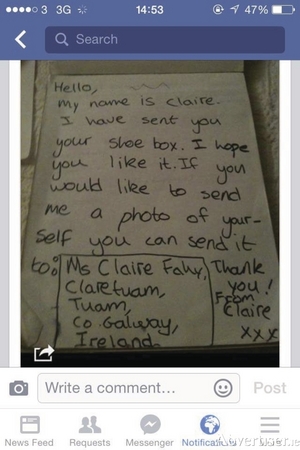 3 3G 14:53 47%
Search
Hello,
My name is Claire.
I have sent you
your shoe box. I hope
you like it. If you
would like to send
me a photo of your-
self you can send it
to:
Ms Claire Fahy,
Claretuam,
Tuam,
Co. Galway,
Ireland
Thank
you!
From
Claire
xxx
Write a comment...
Post
News Feed Requests Messenger Notifications
Advertiser.ie